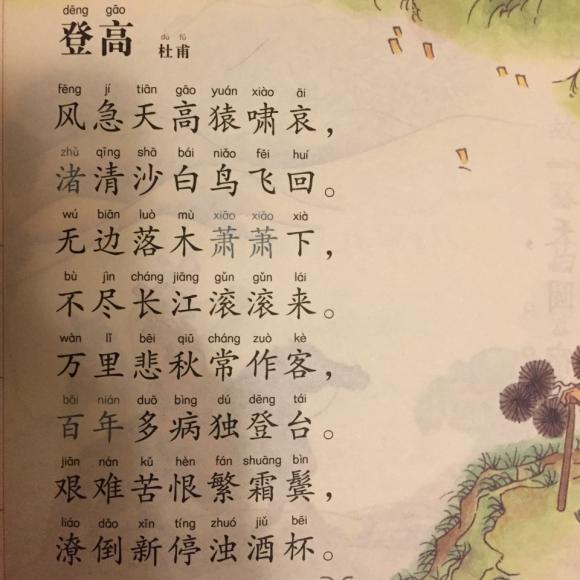 dēng gāo
登高
dù fǔ
杜甫
fēng jí tiān gāo yuán xiào āi
风急天高猿啸哀，
zhǔ qīng shā bái niǎo fēi huí
渚清沙白鸟飞回。
wú biān luò mù xiāo xiāo xià
无边落木萧萧下，
bù jìn cháng jiāng gǔn gǔn lái
不尽长江滚滚来。
wàn lǐ bēi qiū cháng zuò kè
万里悲秋常作客，
bǎi nián duō bìng dú dēng tái
百年多病独登台。
jiān nán kǔ hèn fán shuāng bìn
艰难苦恨繁霜鬓，
liáo dǎo xīn tíng zhuó jiǔ bēi
潦倒新停浊酒杯。